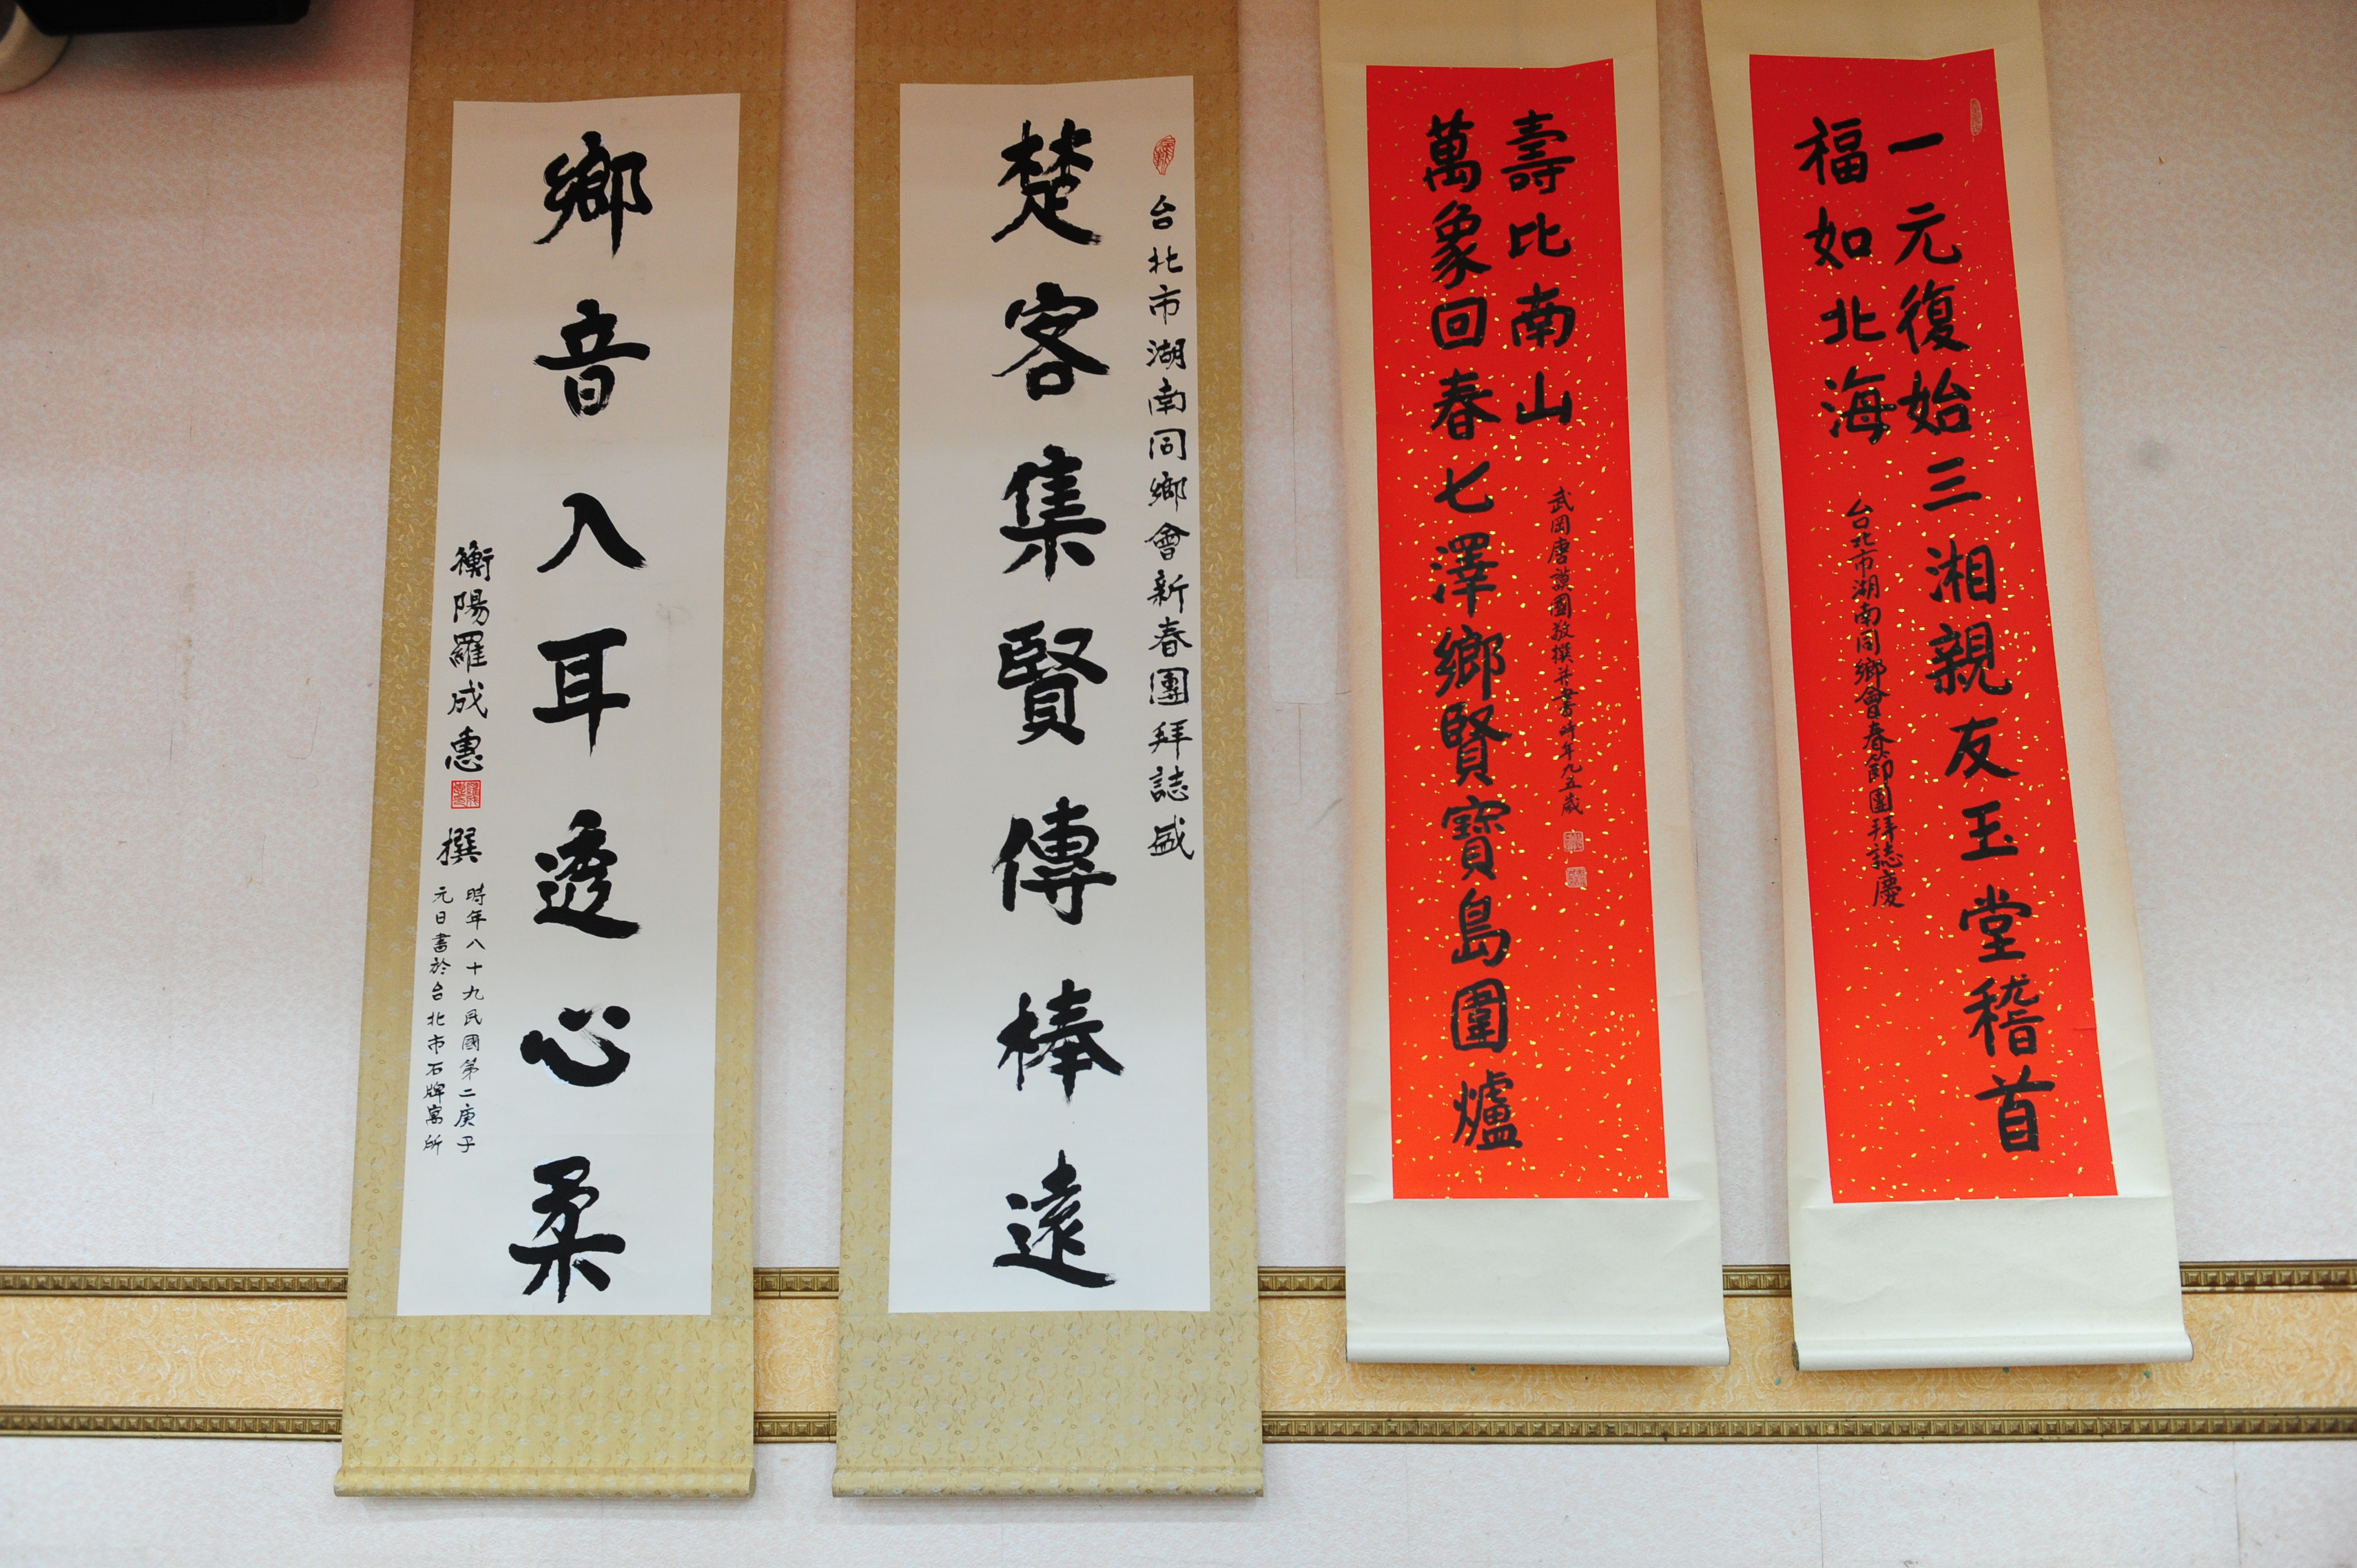 一元復始三湘親友玉堂稽首
福如北海
台北市湖南同鄉會春節團拜誌慶
壽比南山
武岡唐謨國敬撰并書時年九五歲
萬象回春七澤鄉賢寶島圍爐
台北市湖南同鄉會新春團拜誌盛
楚客集賢傳棒遠
鄉音入耳透心柔
衡陽羅成惠 撰
時年八十九民國第二庚子
元日書於台北市石牌寓所